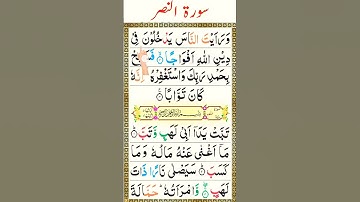 سورة النصر
وَرَاَیْتَ النَّاسَ یَدْخُلُوْنَ فِیْ
دِیْنِ اللّٰهِ اَفْوَاجًا ۙ
بِحَمْدِ رَبِّكَ وَاسْتَغْفِرْهُ
كَانَ تَوَّابًا
بِسْمِ اللّٰهِ الرَّحْمٰنِ الرَّحِیْمِ
تَبَّتْ یَدَاۤ اَبِیْ لَهَبٍ وَّتَبَّ
مَاۤ اَغْنٰی عَنْهُ مَالُهٗ وَمَا
كَسَبَ سَیَصْلٰی نَارًا ذَاتَ
لَهَبٍ وَّامْرَاَتُهٗ حَمَّالَةَ